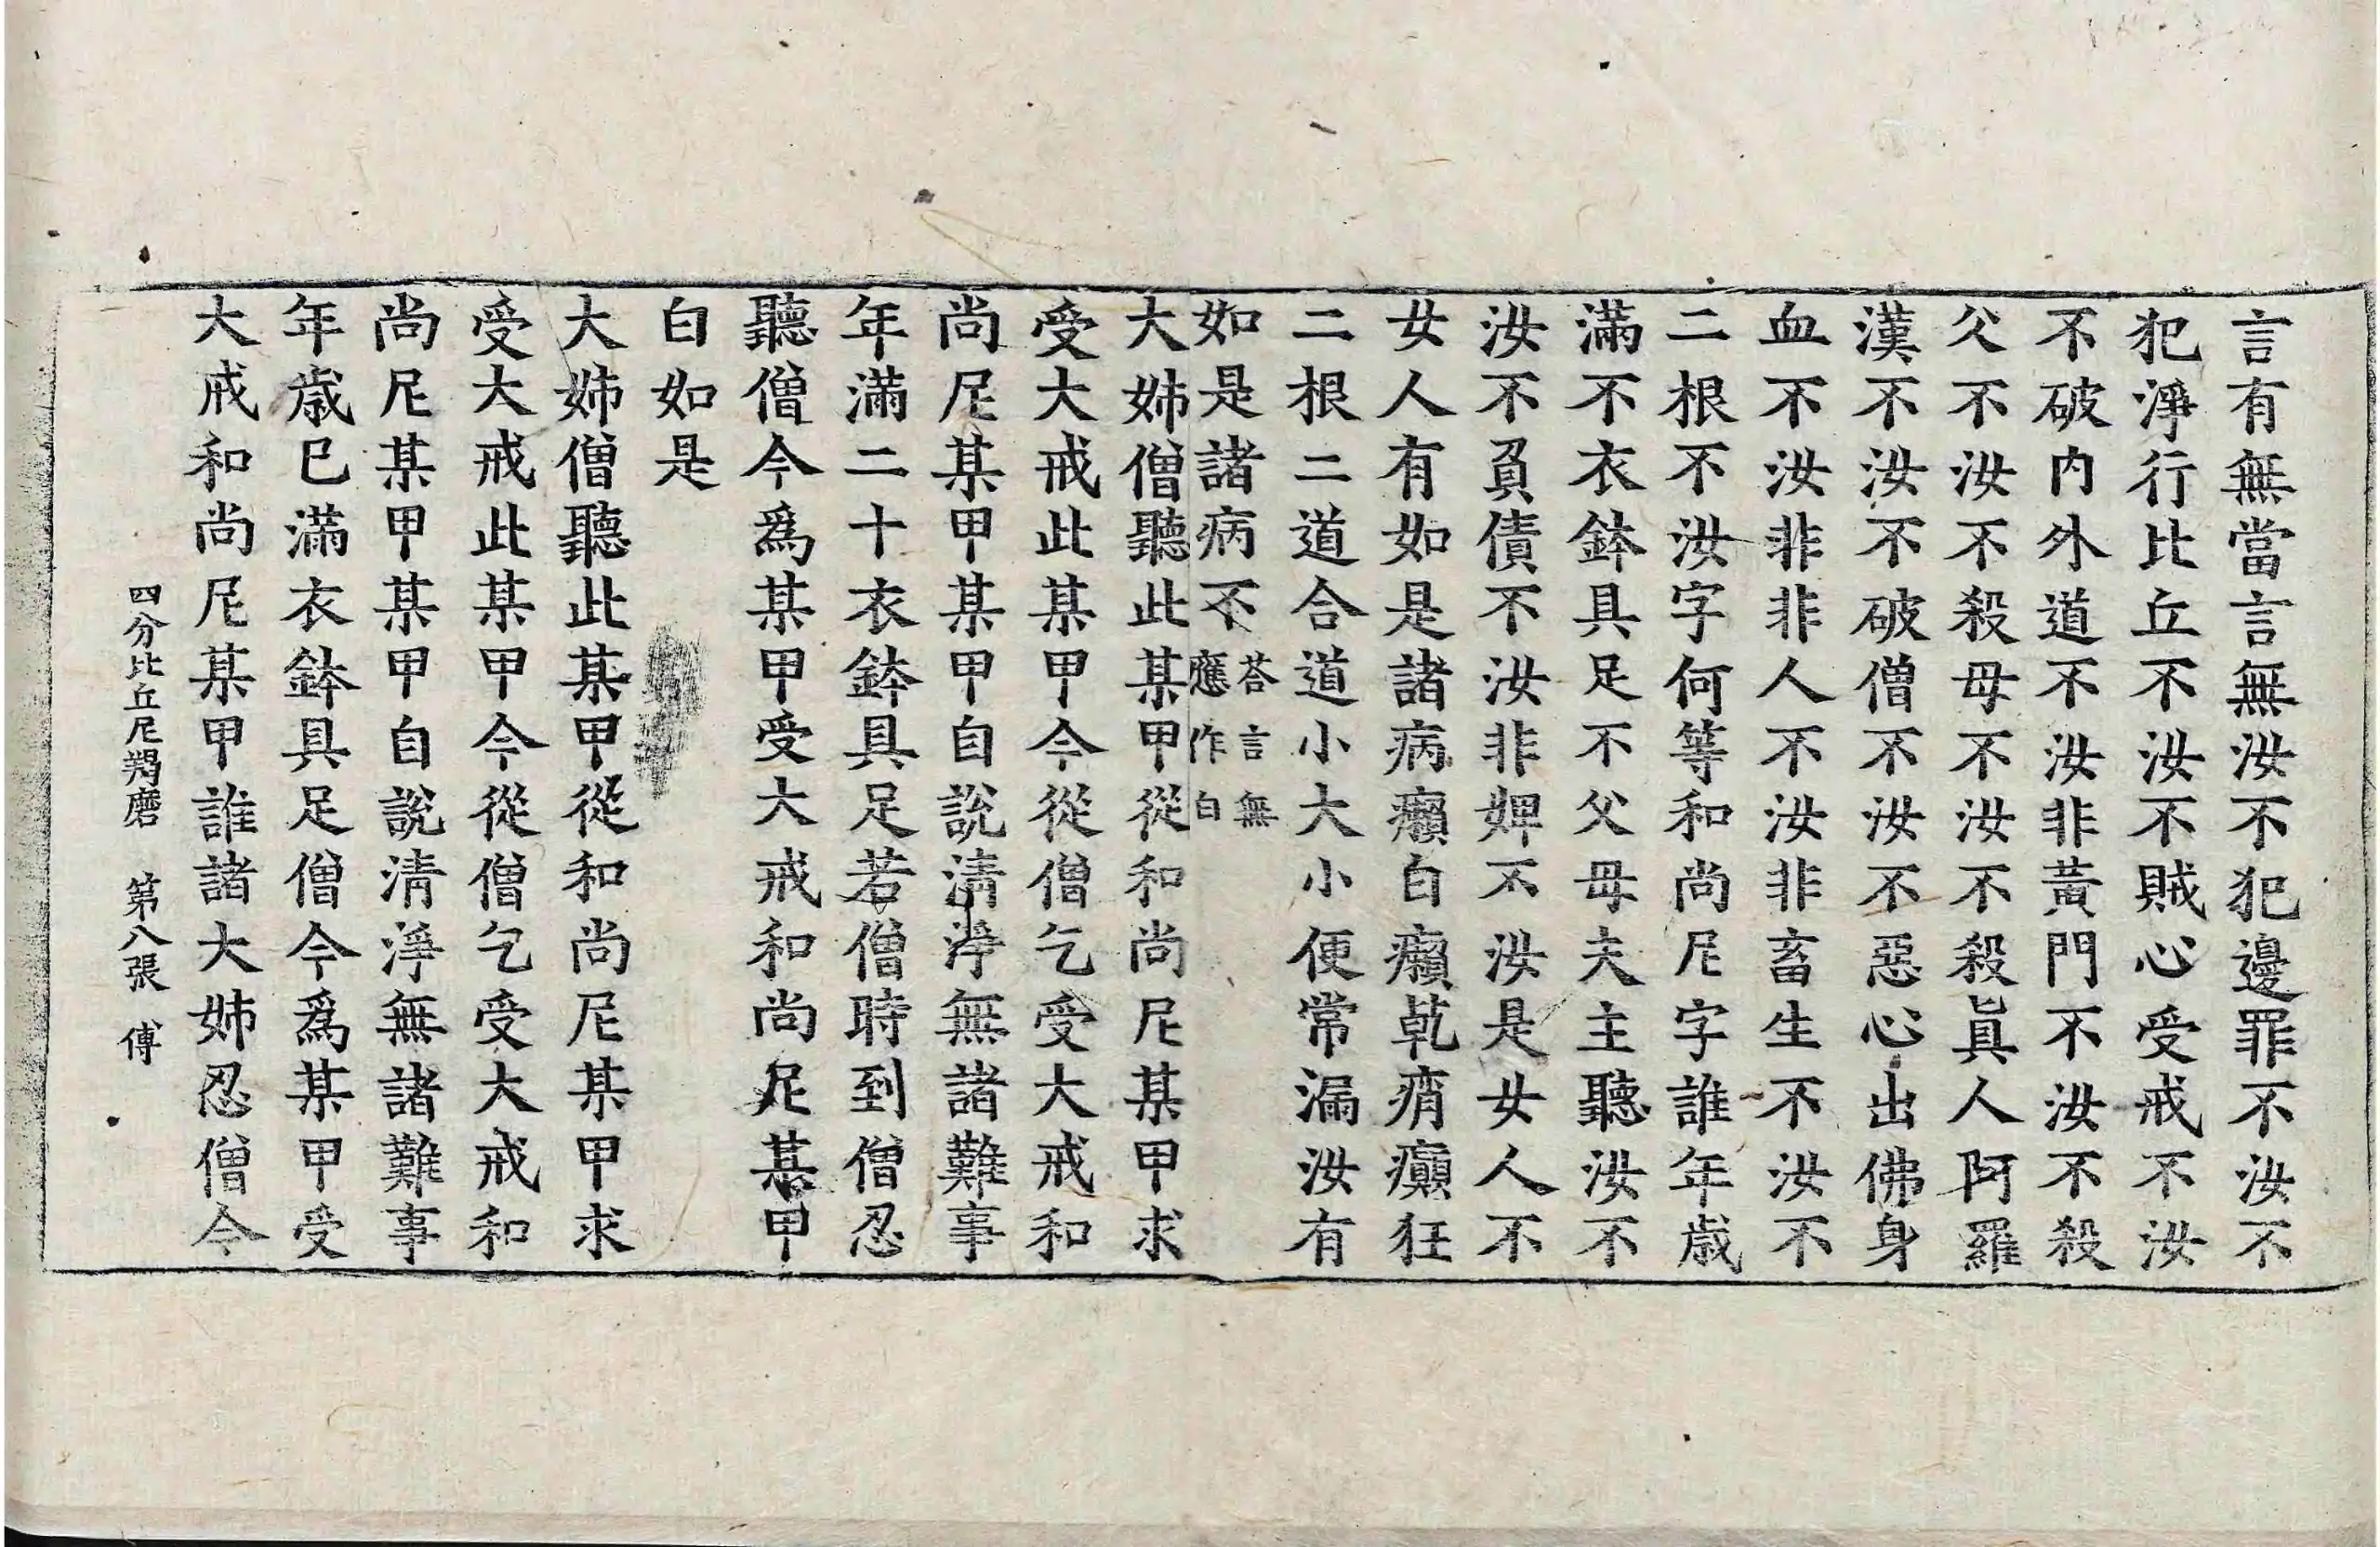 言有無當言無汝不犯邊罪不汝不
犯淨行比丘不汝不賊心受戒不汝
不破内外道不汝非黃門不汝不殺
父不汝不殺母不汝不殺眞人阿羅
漢不汝不破僧不汝不惡心出佛身
血不汝非非人不汝非畜生不汝不
二根不汝字何等和尚尼字誰年歲
滿不衣鉢具足不父母夫主聽汝不
汝不負債不汝非婢不汝是女人不
女人有如是諸病癩白癩乾痟癲狂
二根二道合道小大小便常漏汝有
如是諸病不荅言無應作白
大姊僧聽此某甲從和尚尼某甲求
受大戒此某甲今從僧乞受大戒和
尚尼某甲某甲自說清淨無諸難事
年滿二十衣鉢具足若僧時到僧忍
聽僧今爲某甲受大戒和尚尼某甲
白如是
大姊僧聽此某甲從和尚尼某甲求
受大戒此某甲今從僧乞受大戒和
尚尼某甲某甲自說清淨無諸難事
年歲已滿衣鉢具足僧今爲某甲受
大戒和尚尼某甲誰諸大姊忍僧今
四分比丘尼羯磨 第八張 傅